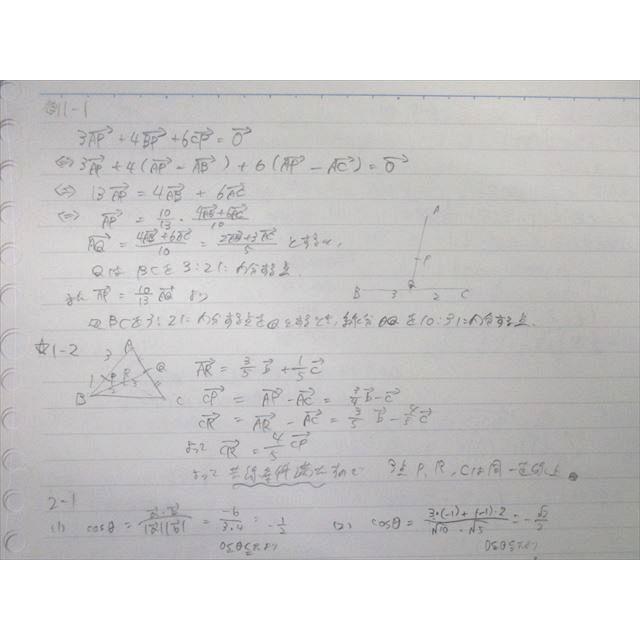 例1-1
3AP→ + 4BP→ + 6CP→ = 0→
⇔ 3AP→ + 4(AP→ - AB→) + 6(AP→ - AC→) = 0→
⇔ 13AP→ = 4AB→ + 6AC→
⇔ AP→ = 10/13 · (4AB→ + 6AC→)/10
AQ→ = (4AB→ + 6AC→)/10 = (2AB→ + 3AC→)/5 とすると,
QはBCを3:2に内分する点.
また AP→ = 10/13 AQ→ より
BCを3:2に内分する点をQとすると, 線分AQを10:3に内分する点.
A
P
Q
B 3 2 C
☆1-2
A
3
1
P
R
Q
B
C
AR→ = 3/5 b→ + 1/5 c→
CP→ = AP→ - AC→ = 3/4 b→ - c→
CR→ = AR→ - AC→ = 3/5 b→ - 4/5 c→
よって CR→ = 4/5 CP→
よって 3点 P, R, Cは同一直線上
2-1
(1) cosθ = a→·b→/|a→||b→| = -6/3·4 = -1/2
0≦θ≦180°
(2) cosθ = (3·(-1) + (-1)·2)/(√10 · √5) = -√2/2
0≦θ≦180°